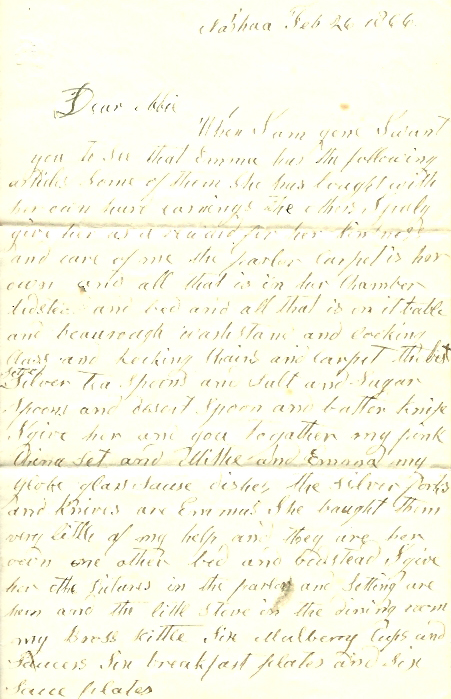 Nashua Feb 26 1866
Dear Abbie
When I am gone I want
you to see that Emma has the following
articles Some of them she has bought with
her own hard earnings the others I
give her as a reward for her kindness
and care of me the parlor Carpet is her
own and all that is in her Chamber
bedstead and bed and all that is in it table
and beaurough wash stand and Looking
Glass and Rocking Chairs and carpet the best
Silver tea Spoons and Salt and Sugar
Spoons and desert Spoon and butter knife
I give her and you together my pink
China Set and and Emma my
globe glass Sause dishes the Silver forks
and knives are Emmas She bought them
very little of my help and they are her
own one other bed and bedstead I give
her the pictures in the parlor and Setting are
hers and the little Stove in the dining room
my brass kittle Six Mulberry Cups and
Saucers Six breakfast plates and Six
Sauce plates